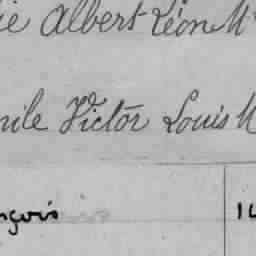 ie Albert Léon M
mile Victor Louis M
nçois 14